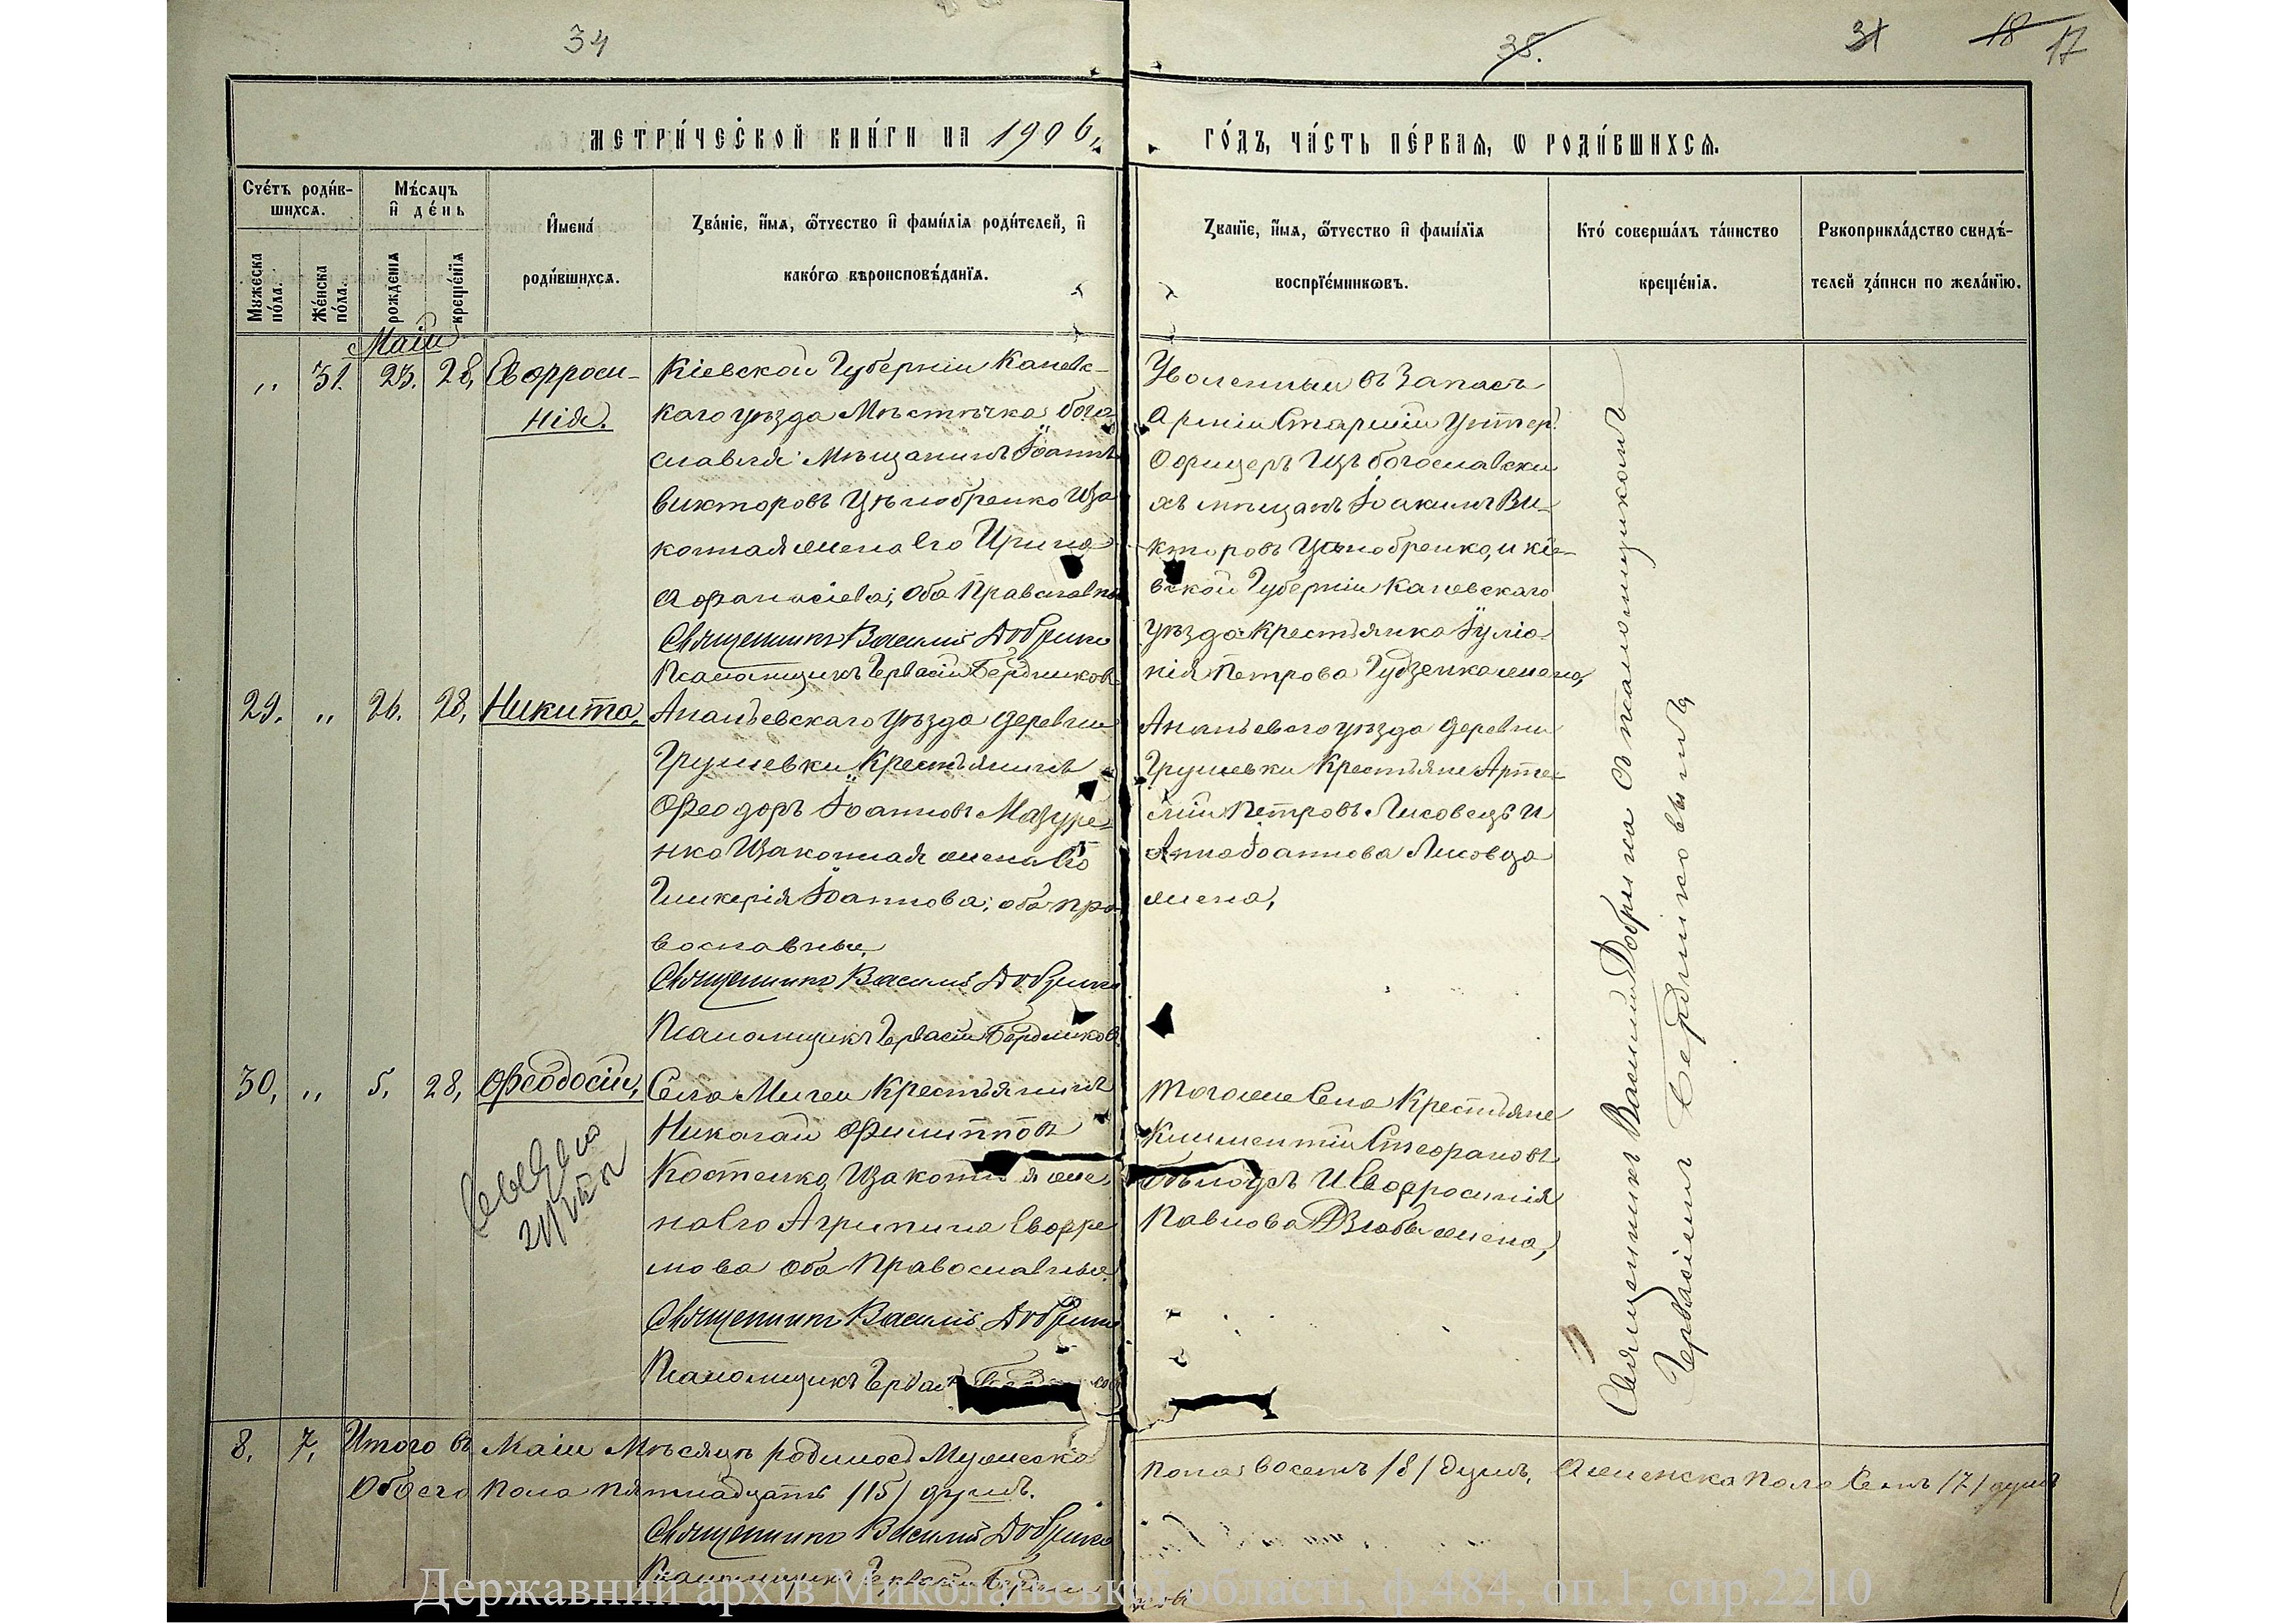 34
35.
31
18
17
МЕТРИ́ЧЕСКОЙ КНИ́ГИ НА 1906,
ГО́ДЪ, ЧА́СТЬ ПЕ́РВАЯ, Ѡ РОДИ́ВШИХСЯ.
Счетъ роди́в-
шихся.
Му́жеска по́ла.
Же́нска по́ла.
Мѣсяцъ
и де́нь
рожденія
креще́нія
Имена́
роди́вшихся.
Зва́ніе, имя, отчество и фами́лія роди́телей, и
како́гѡ вѣроисповѣ́данія.
Зва́ніе, имя, отчество и фами́лія
воспріе́мникѡвъ.
Кто́ соверша́лъ та́инство
креще́нія.
Рукоприкла́дство свидѣ́-
телей за́писи по жела́нію.
Маій
„ 31. 23. 28, Евфроси-
нія.
Кіевской Губерніи Каневс-
каго уѣзда Мѣстечка Бого-
славля Мѣщанинъ Іоаннъ
Викторовъ Цѣнобренко Иза
конная жена Его Ирина
Афанасіева; Оба Православны
Священникъ Василій Добрина
Псаломщикъ Гервасій Бердников
Уволенный въ Запасъ
Арміи Старшій Унтер
Офицеръ Изъ богославски
хъ мѣщанъ Іоакимъ Ви-
кторовъ Цѣнобренко, и кіе-
вской Губерніи Каневскаго
уѣзда Крестьянка Іуліа
нія Петрова Гудзенка жена,
29. „ 26. 28, Никита,
Ананьевскаго уѣзда деревни
Грушевки Крестьянинъ
Феодоръ Іоанновъ Мазуре-
нко Изаконная жена Его
Гликерія Іоаннова; оба пра
вославные,
Священникъ Василій Добрина
Псаломщикъ Гервасій Бердников
Ананьевскаго уѣзда деревни
Грушевки Крестьяне Арте-
мій Петровъ Лисовецъ и
Анна Іоаннова Лисовца
жена,
30, „ 5. 28, Феодосій,
Села Мигеи Крестьянинъ
Николай Филипповъ
Костенко, Изаконная же
на Его Агрипина Евфре
мова Оба Православные.
Священникъ Василій Добрина
Псаломщикъ Гервас
Тогоже Села Крестьяне
Климентій Стефановъ
Бѣлоусъ И Евфросинія
Павлова Дзюбы жена,
Священникъ Василій Добрина съ псаломщикомъ
Гервасіемъ Бердниковымъ
8. 7, Итого въ Маіи Мѣсяцѣ родилось Мужеска
пола восемь /8/ душъ, Женска пола Семь /7/ душъ
Обоего пола пятнадцать /15/ душъ.
Священникъ Василій Добрина
Псаломщикъ Гервасій Бердни
ков
Державний архів Миколаївської області, ф.484, оп.1, спр.2210